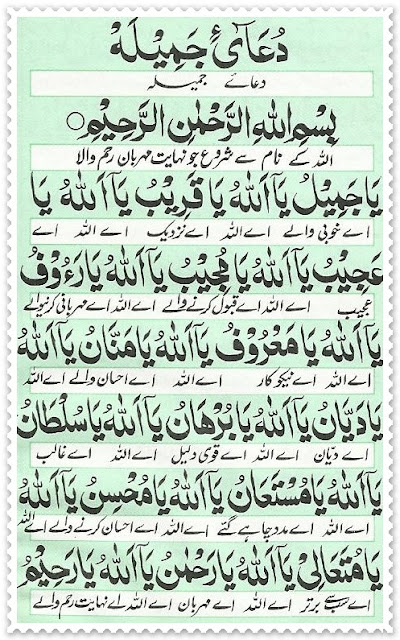 دُعَائِ جَمِيْلَه
دعائے جمیلہ
بِسْمِ اللهِ الرَّحْمٰنِ الرَّحِيْمِ○
اللہ کے نام سے شروع جو نہایت مہربان رحم والا
يَا جَمِيْلُ يَآ اَللهُ يَا قَرِيْبُ يَآ اَللهُ يَا
اے خوبی والے اے اللہ اے نزدیک اے اللہ اے
عَجِيْبُ يَآ اَللهُ يَا مُجِيْبُ يَآ اَللهُ يَا رَءُوْفُ
عجیب اے اللہ اے قبول کرنے والے اے اللہ اے مہربانی کرنیوالے
يَآ اَللهُ يَا مَعْرُوْفُ يَآ اَللهُ يَا مَنَّانُ يَآ اَللهُ
اے اللہ اے نیکوکار اے اللہ اے احسان والے اے اللہ
يَا دَيَّانُ يَآ اَللهُ يَا بُرْهَانُ يَآ اَللهُ يَا سُلْطَانُ
اے دیان اے اللہ اے قوی دلیل اے اللہ اے غالب
يَآ اَللهُ يَا مُسْتَعَانُ يَآ اَللهُ يَا مُحْسِنُ يَآ اَللهُ
اے اللہ اے مدد چاہے گئے اے اللہ اے احسان کرنے والے اے اللہ
يَا مُتَعَالِيْ يَآ اَللهُ يَا رَحْمٰنُ يَآ اَللهُ يَا رَحِيْمُ
اے سب سے برتر اے اللہ اے مہربان اے اللہ اے نہایت رحم والے